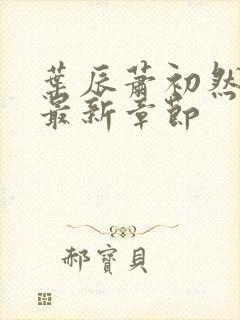 葉辰蕭初然
最新章節
郝寶貝